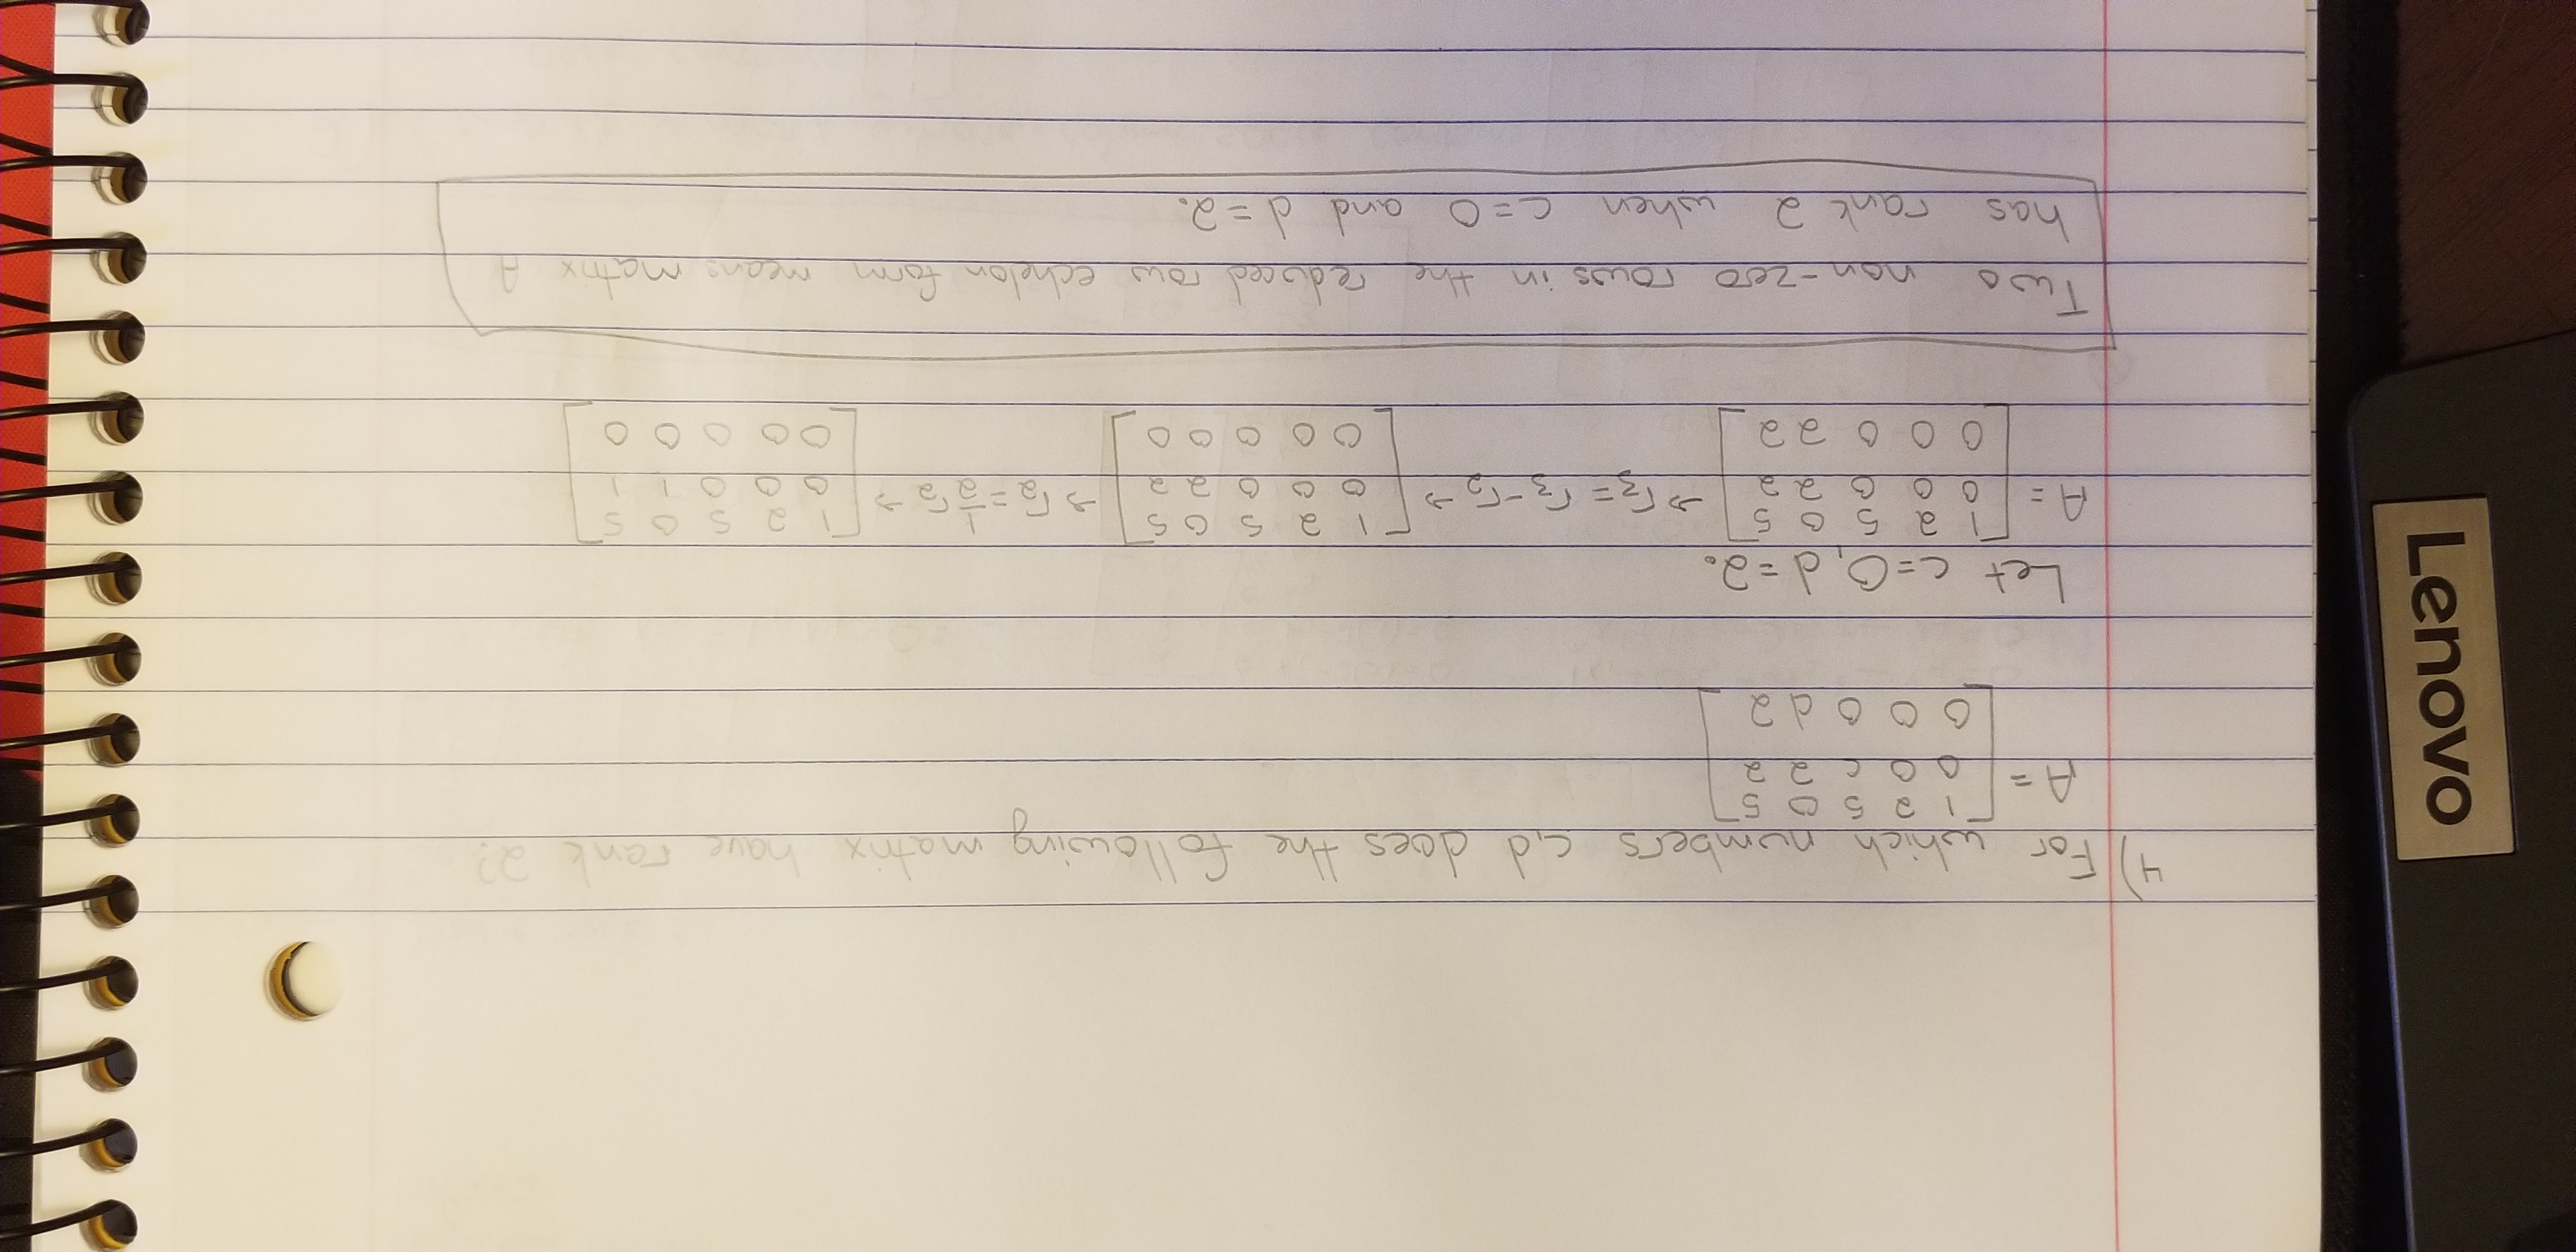 Lenovo
4) For which numbers c,d does the following matrix have rank 2?
A = [1 2 5 0 5
0 0 c 2 2
0 0 0 d 2]
Let c=0, d=2.
A = [1 2 5 0 5
0 0 0 2 2
0 0 0 2 2] → r₃ = r₃ - r₂ → [1 2 5 0 5
0 0 0 2 2
0 0 0 0 0] → r₂ = 1/2 r₂ → [1 2 5 0 5
0 0 0 1 1
0 0 0 0 0]
Two non-zero rows in the reduced row echelon form means matrix A
has rank 2 when c=0 and d=2.